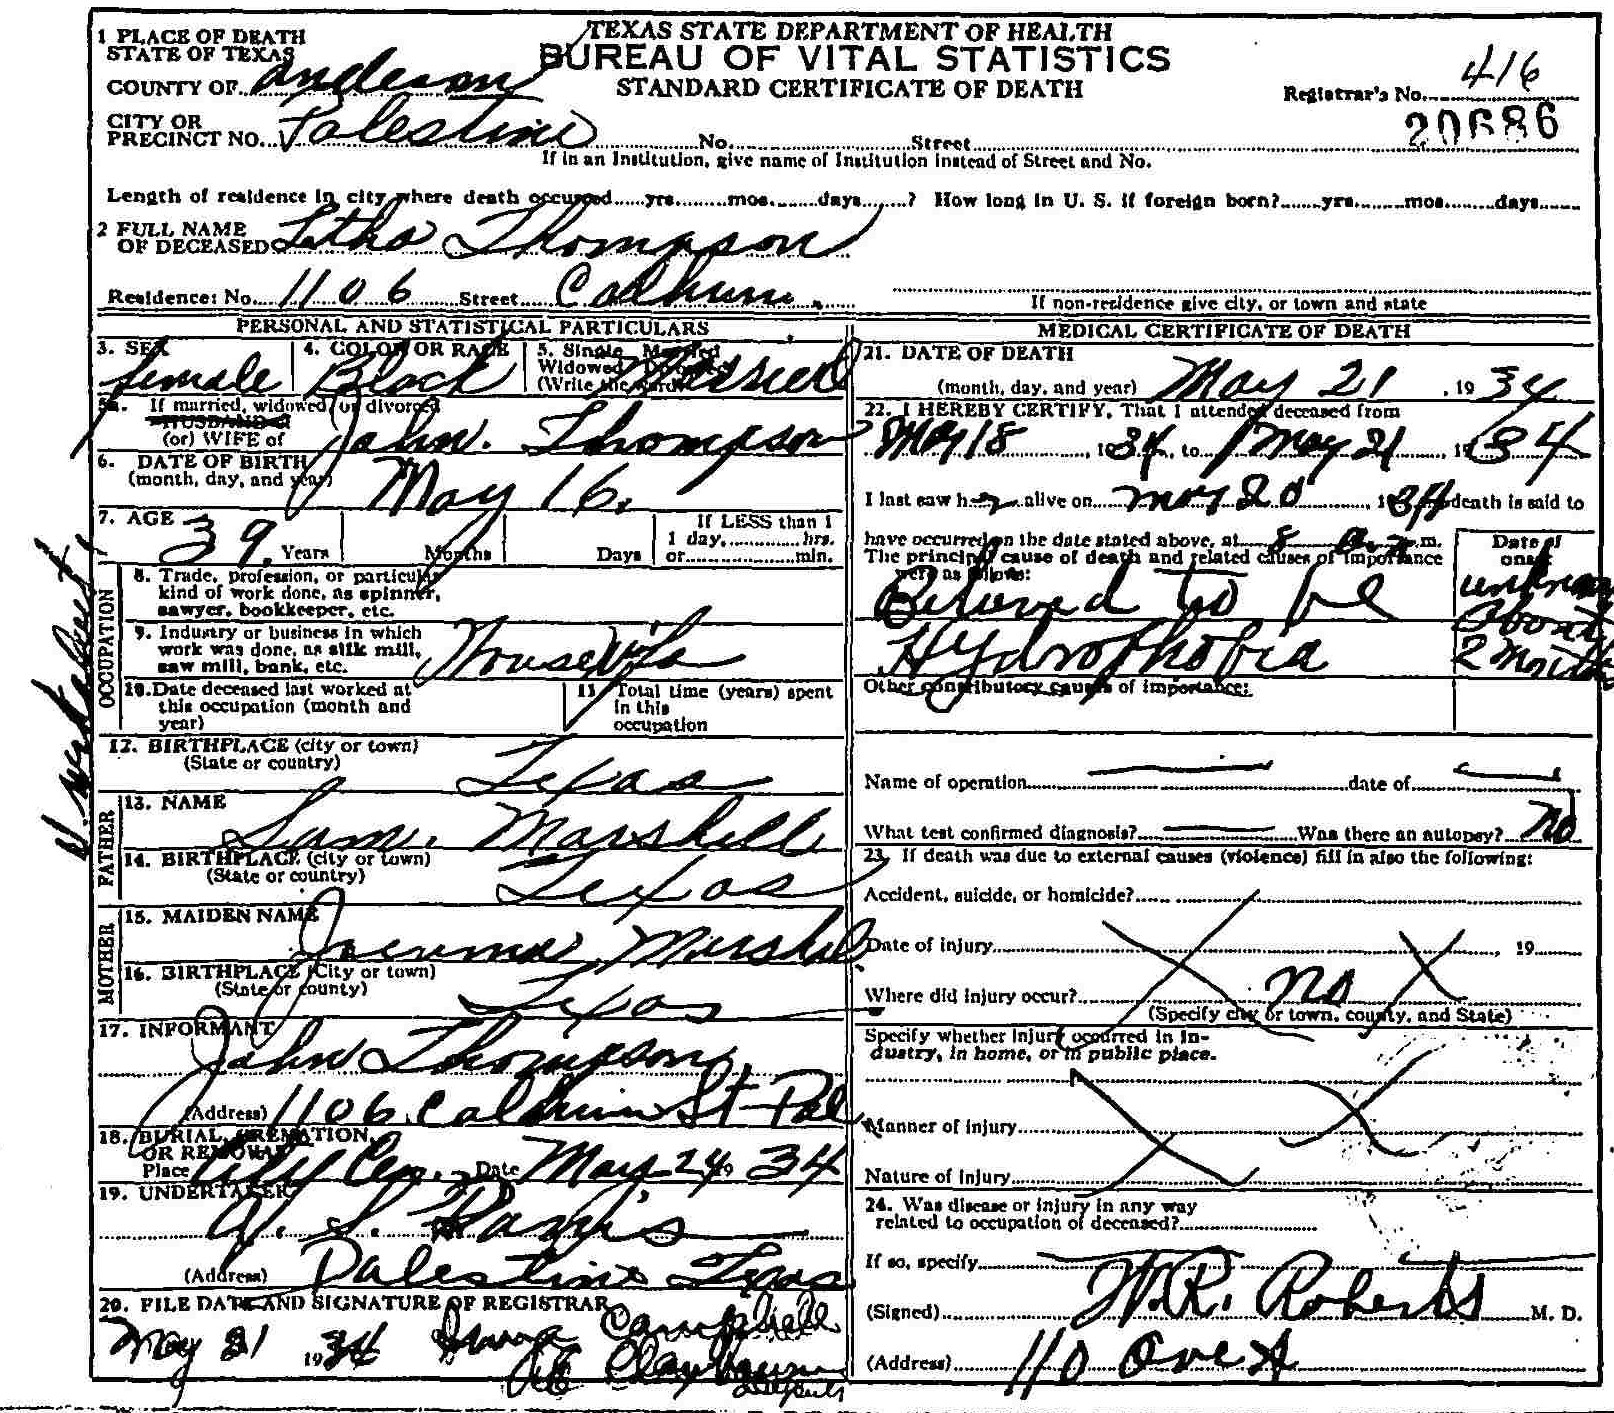 TEXAS STATE DEPARTMENT OF HEALTH
BUREAU OF VITAL STATISTICS
STANDARD CERTIFICATE OF DEATH
1 PLACE OF DEATH
STATE OF TEXAS
COUNTY OF Anderson
Registrar's No. 416
20686
CITY OR
PRECINCT NO. Palestine No. Street
If in an Institution, give name of Institution instead of Street and No.
Length of residence in city where death occurred yrs. mos. days ? How long in U. S. if foreign born? yrs. mos. days
2 FULL NAME
OF DECEASED Letha Thompson
Residence: No. 1106 Street Calhun.
If non-residence give city, or town and state
PERSONAL AND STATISTICAL PARTICULARS
3. SEX 4. COLOR OR RACE 5. Single Married
Widowed Divorced
(Write the word)
female Black Married
5a. If married, widowed, or divorced
HUSBAND of
(or) WIFE of John. Thompson
6. DATE OF BIRTH
(month, day, and year) May 16.
7. AGE 39. Years Months Days If LESS than 1
1 day, hrs.
or min.
OCCUPATION
8. Trade, profession, or particular
kind of work done, as spinner,
sawyer, bookkeeper, etc.
9. Industry or business in which
work was done, as silk mill,
saw mill, bank, etc.
Housewife
10. Date deceased last worked at
this occupation (month and
year)
11. Total time (years) spent
in this
occupation
12. BIRTHPLACE (city or town)
(State or country) Texas
FATHER
13. NAME Sam. Marshell
14. BIRTHPLACE (city or town)
(State or country) Texas
MOTHER
15. MAIDEN NAME
Marshel
16. BIRTHPLACE (City or town)
(State or county) Texas
17. INFORMANT
John Thompson
(Address) 1106 Calhun St Pal
18. BURIAL, CREMATION,
OR REMOVAL
Place City Cem. Date May 24 1934
19. UNDERTAKER
(Address) Palestine Texas
20. FILE DATE AND SIGNATURE OF REGISTRAR
May 31 1934 Campbell
MEDICAL CERTIFICATE OF DEATH
21. DATE OF DEATH
(month, day, and year) May 21, 1934
22. I HEREBY CERTIFY, That I attended deceased from
May 18, 1934, to May 21, 1934
I last saw her alive on May 20, 1934 death is said to
have occurred on the date stated above, at 8 a. m.
The principal cause of death and related causes of importance
were as follows:
Date of
onset
Beleved to be
Hydrophobia
unknown
about
2 months
Other contributory causes of importance:
Name of operation date of
What test confirmed diagnosis? Was there an autopsy? no
23. If death was due to external causes (violence) fill in also the following:
Accident, suicide, or homicide?
Date of injury , 19
Where did injury occur? no
(Specify city or town, county, and State)
Specify whether injury occurred in in-
dustry, in home, or in public place.
Manner of injury
Nature of injury
24. Was disease or injury in any way
related to occupation of deceased?
If so, specify
(Signed) W.R. Roberts M. D.
(Address) 110